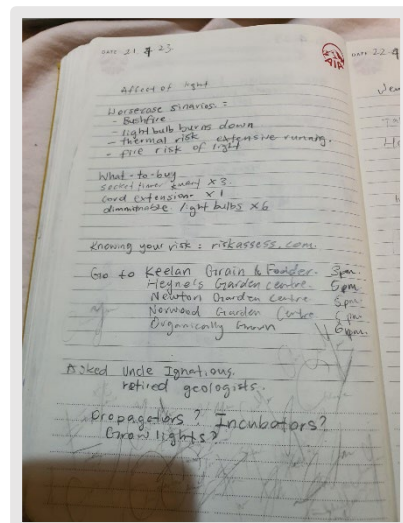 DATE 21 4 23
AIA
DATE 22 4
Affect of light
Worsecase sinarios. :
- Bushfire
- light bulb burns down
- thermal risk extensive running.
- fire risk of light
What-to-buy
socket timer x3
cord extension x1
dimmable light bulbs x6
Knowing your risk : riskassess.com.
Go to Keelan Grain & Fodder. 3pm.
Heyne's Garden centre. 5pm.
Newton Garden centre 5pm.
Norwood Garden Centre
Organically Grown 6pm.
Asked Uncle Ignatious.
retired geologists.
Propagators? Incubators?
Grow lights?